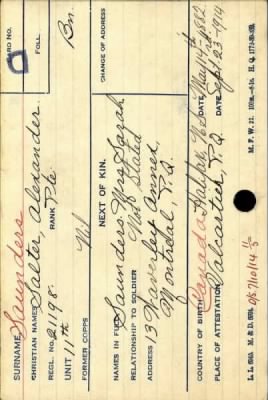 CARD NO.
FOLL. Bn.
SURNAME Saunders
CHRISTIAN NAMES Walter, Alexander.
REGL. NO. 21198. RANK Pte
UNIT 11th
FORMER CORPS Nil
NEXT OF KIN. CHANGE OF ADDRESS
NAMES IN FULL Saunders Mrs Sarah
RELATIONSHIP TO SOLDIER Not Stated
ADDRESS 13 Waverley Annex,
Montreal, P.Q.
COUNTRY OF BIRTH Canada Halifax N.S. DATE May 14th 1882
PLACE OF ATTESTATION Valcartier, P.Q. DATE Sept 23rd 1914
O/S 7/10/14
M. F. W. 22.